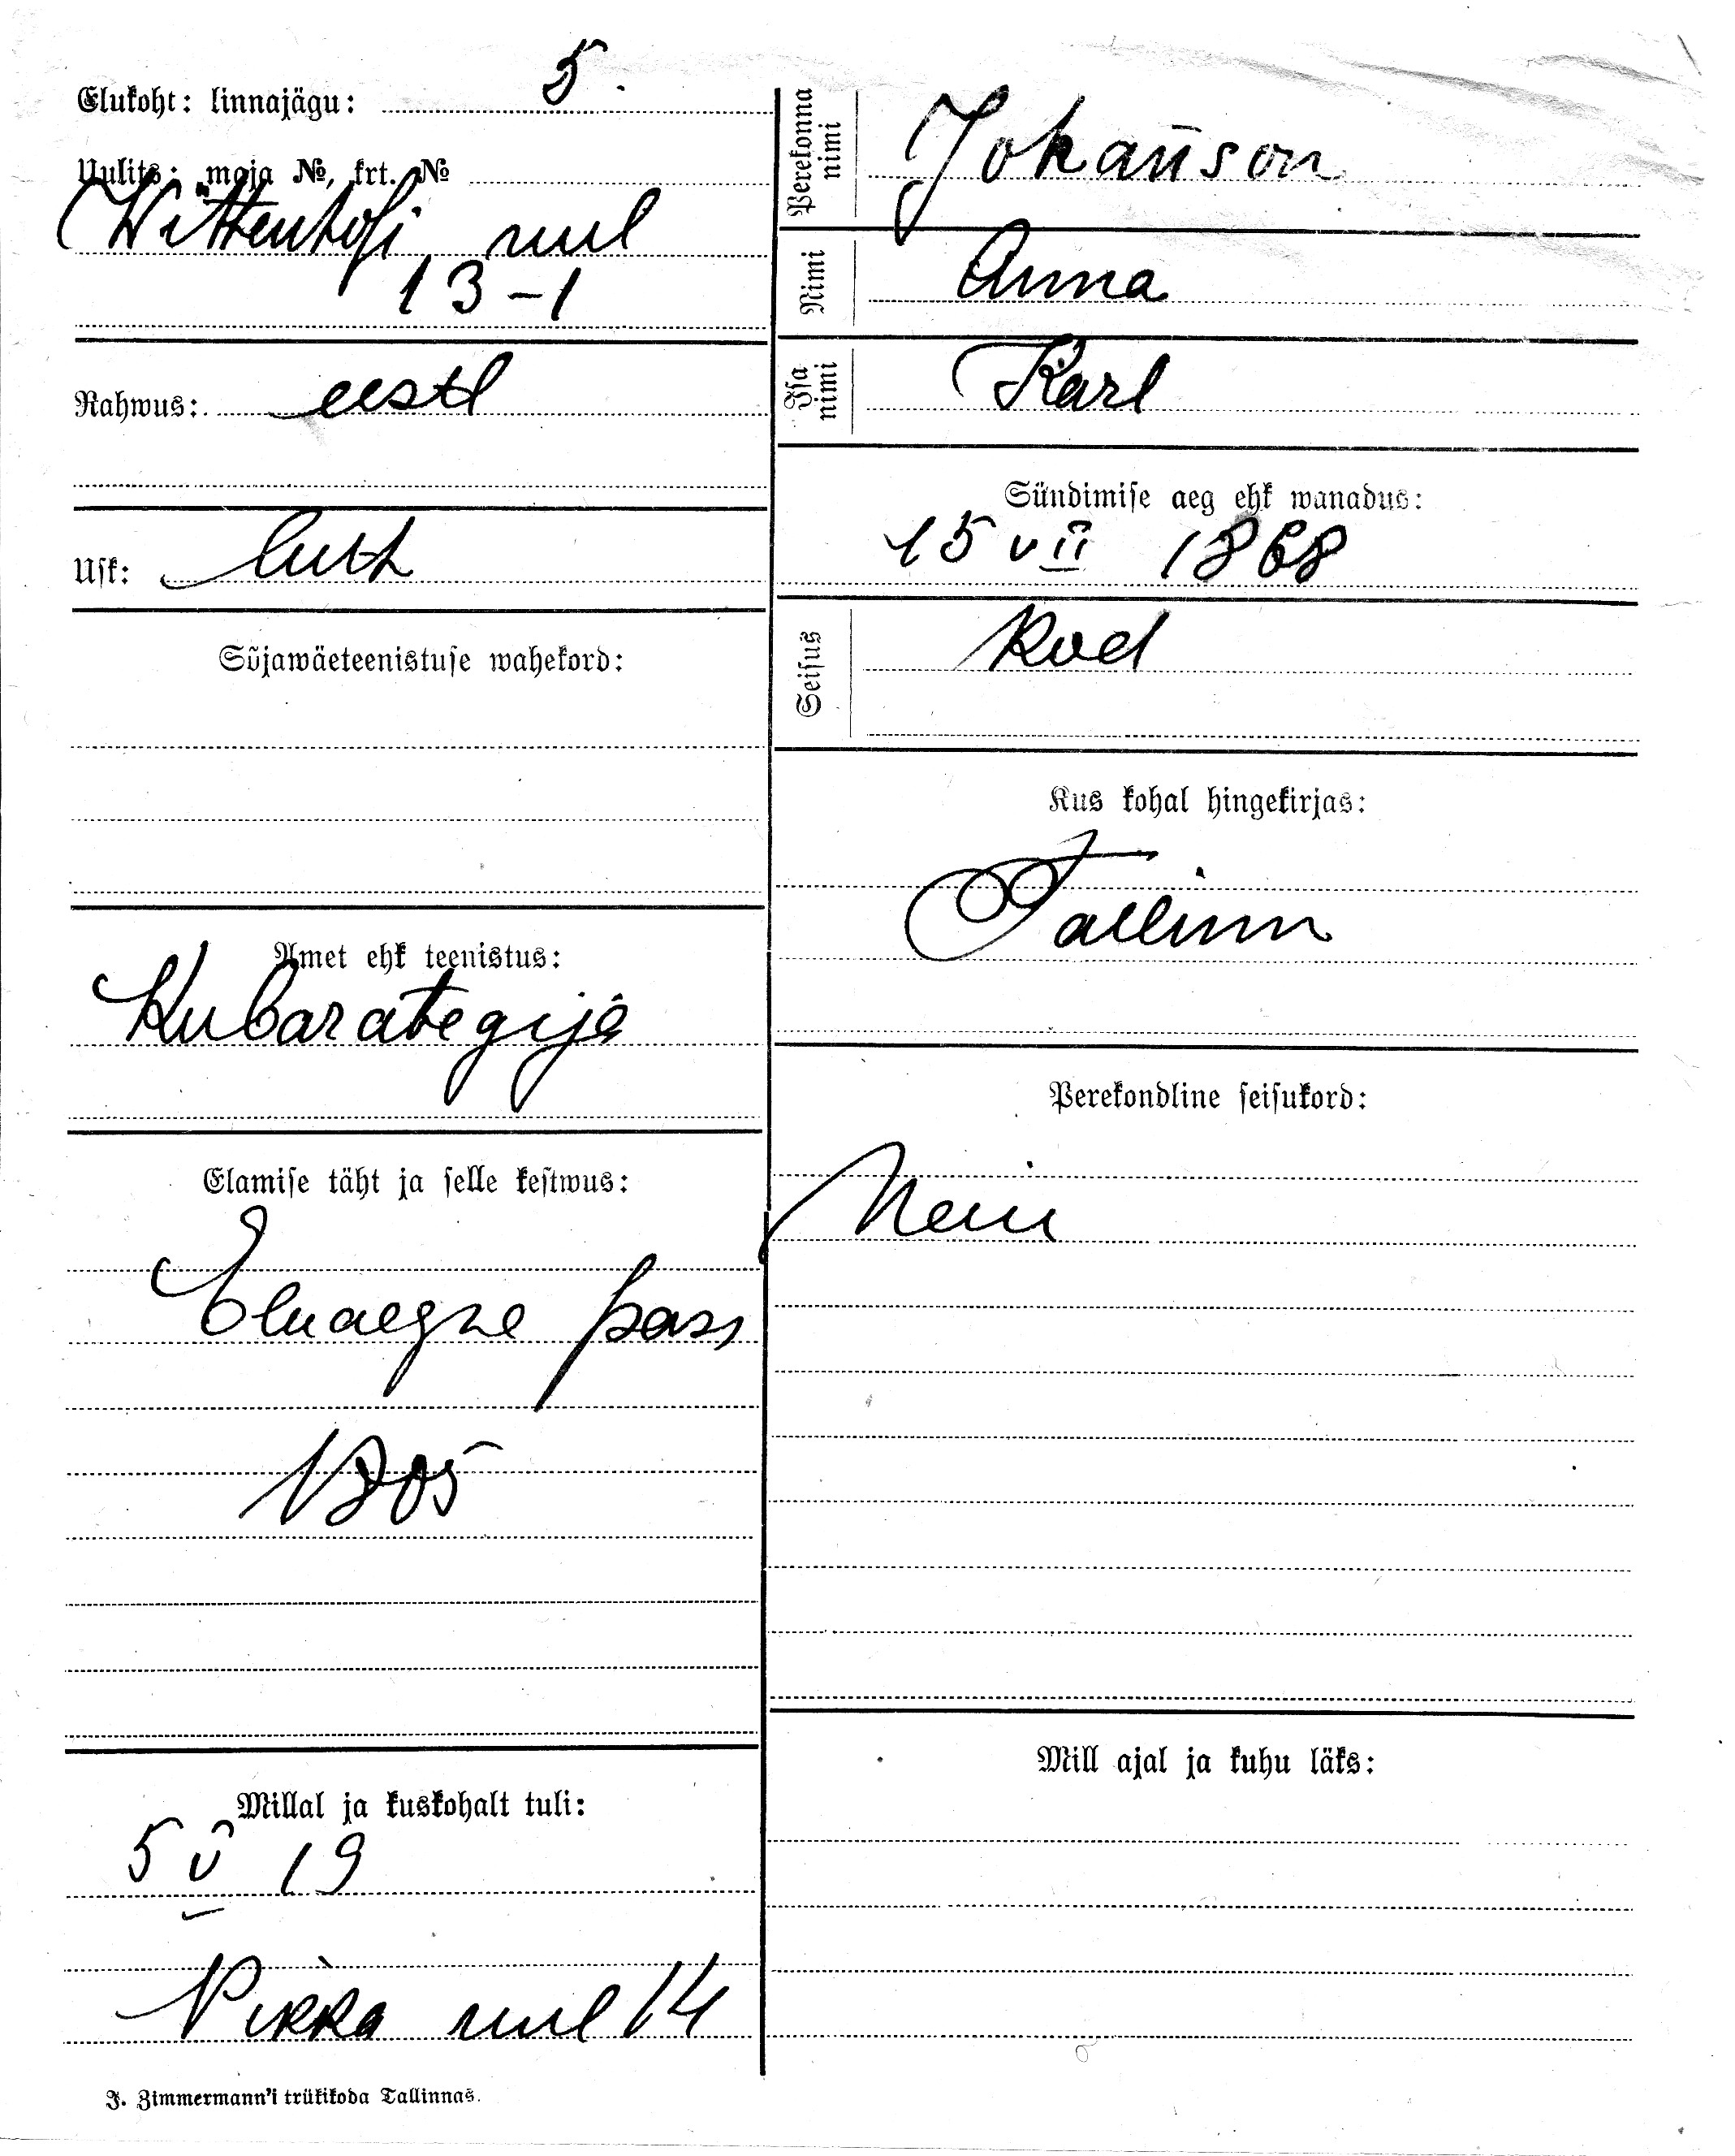 Elukoht: linnajägu: 5.
Uulits: maja №, krt. №
Wittenhofi uul
13-1
Rahwus: eestl
Usk: luth
Sõjawäeteenistuse wahekord:
Amet ehk teenistus:
Kübarategija
Elamise täht ja selle kestwus:
Eluaegne pass
1805
Millal ja kuskohalt tuli:
5 V 19
Pikka uul 14
J. Zimmermann'i trükikoda Tallinnas.
Perekonna nimi Johanson
Nimi Anna
Isa nimi Karl
Sündimise aeg ehk wanadus:
15 VII 1868
Seisus kod
Kus kohal hingekirjas:
Tallinn
Perekondline seisukord:
Neiu
Mill ajal ja kuhu läks: